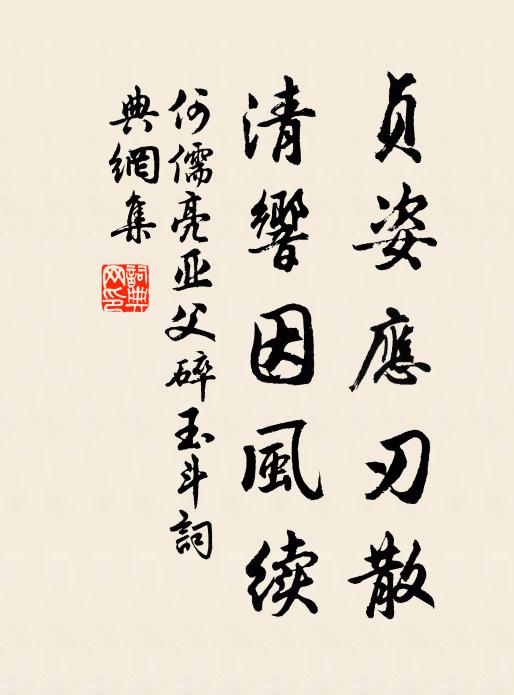 贞姿應刃散
清響因風续
何儒亮亚父碎玉斗詞
典網集
詞典网印